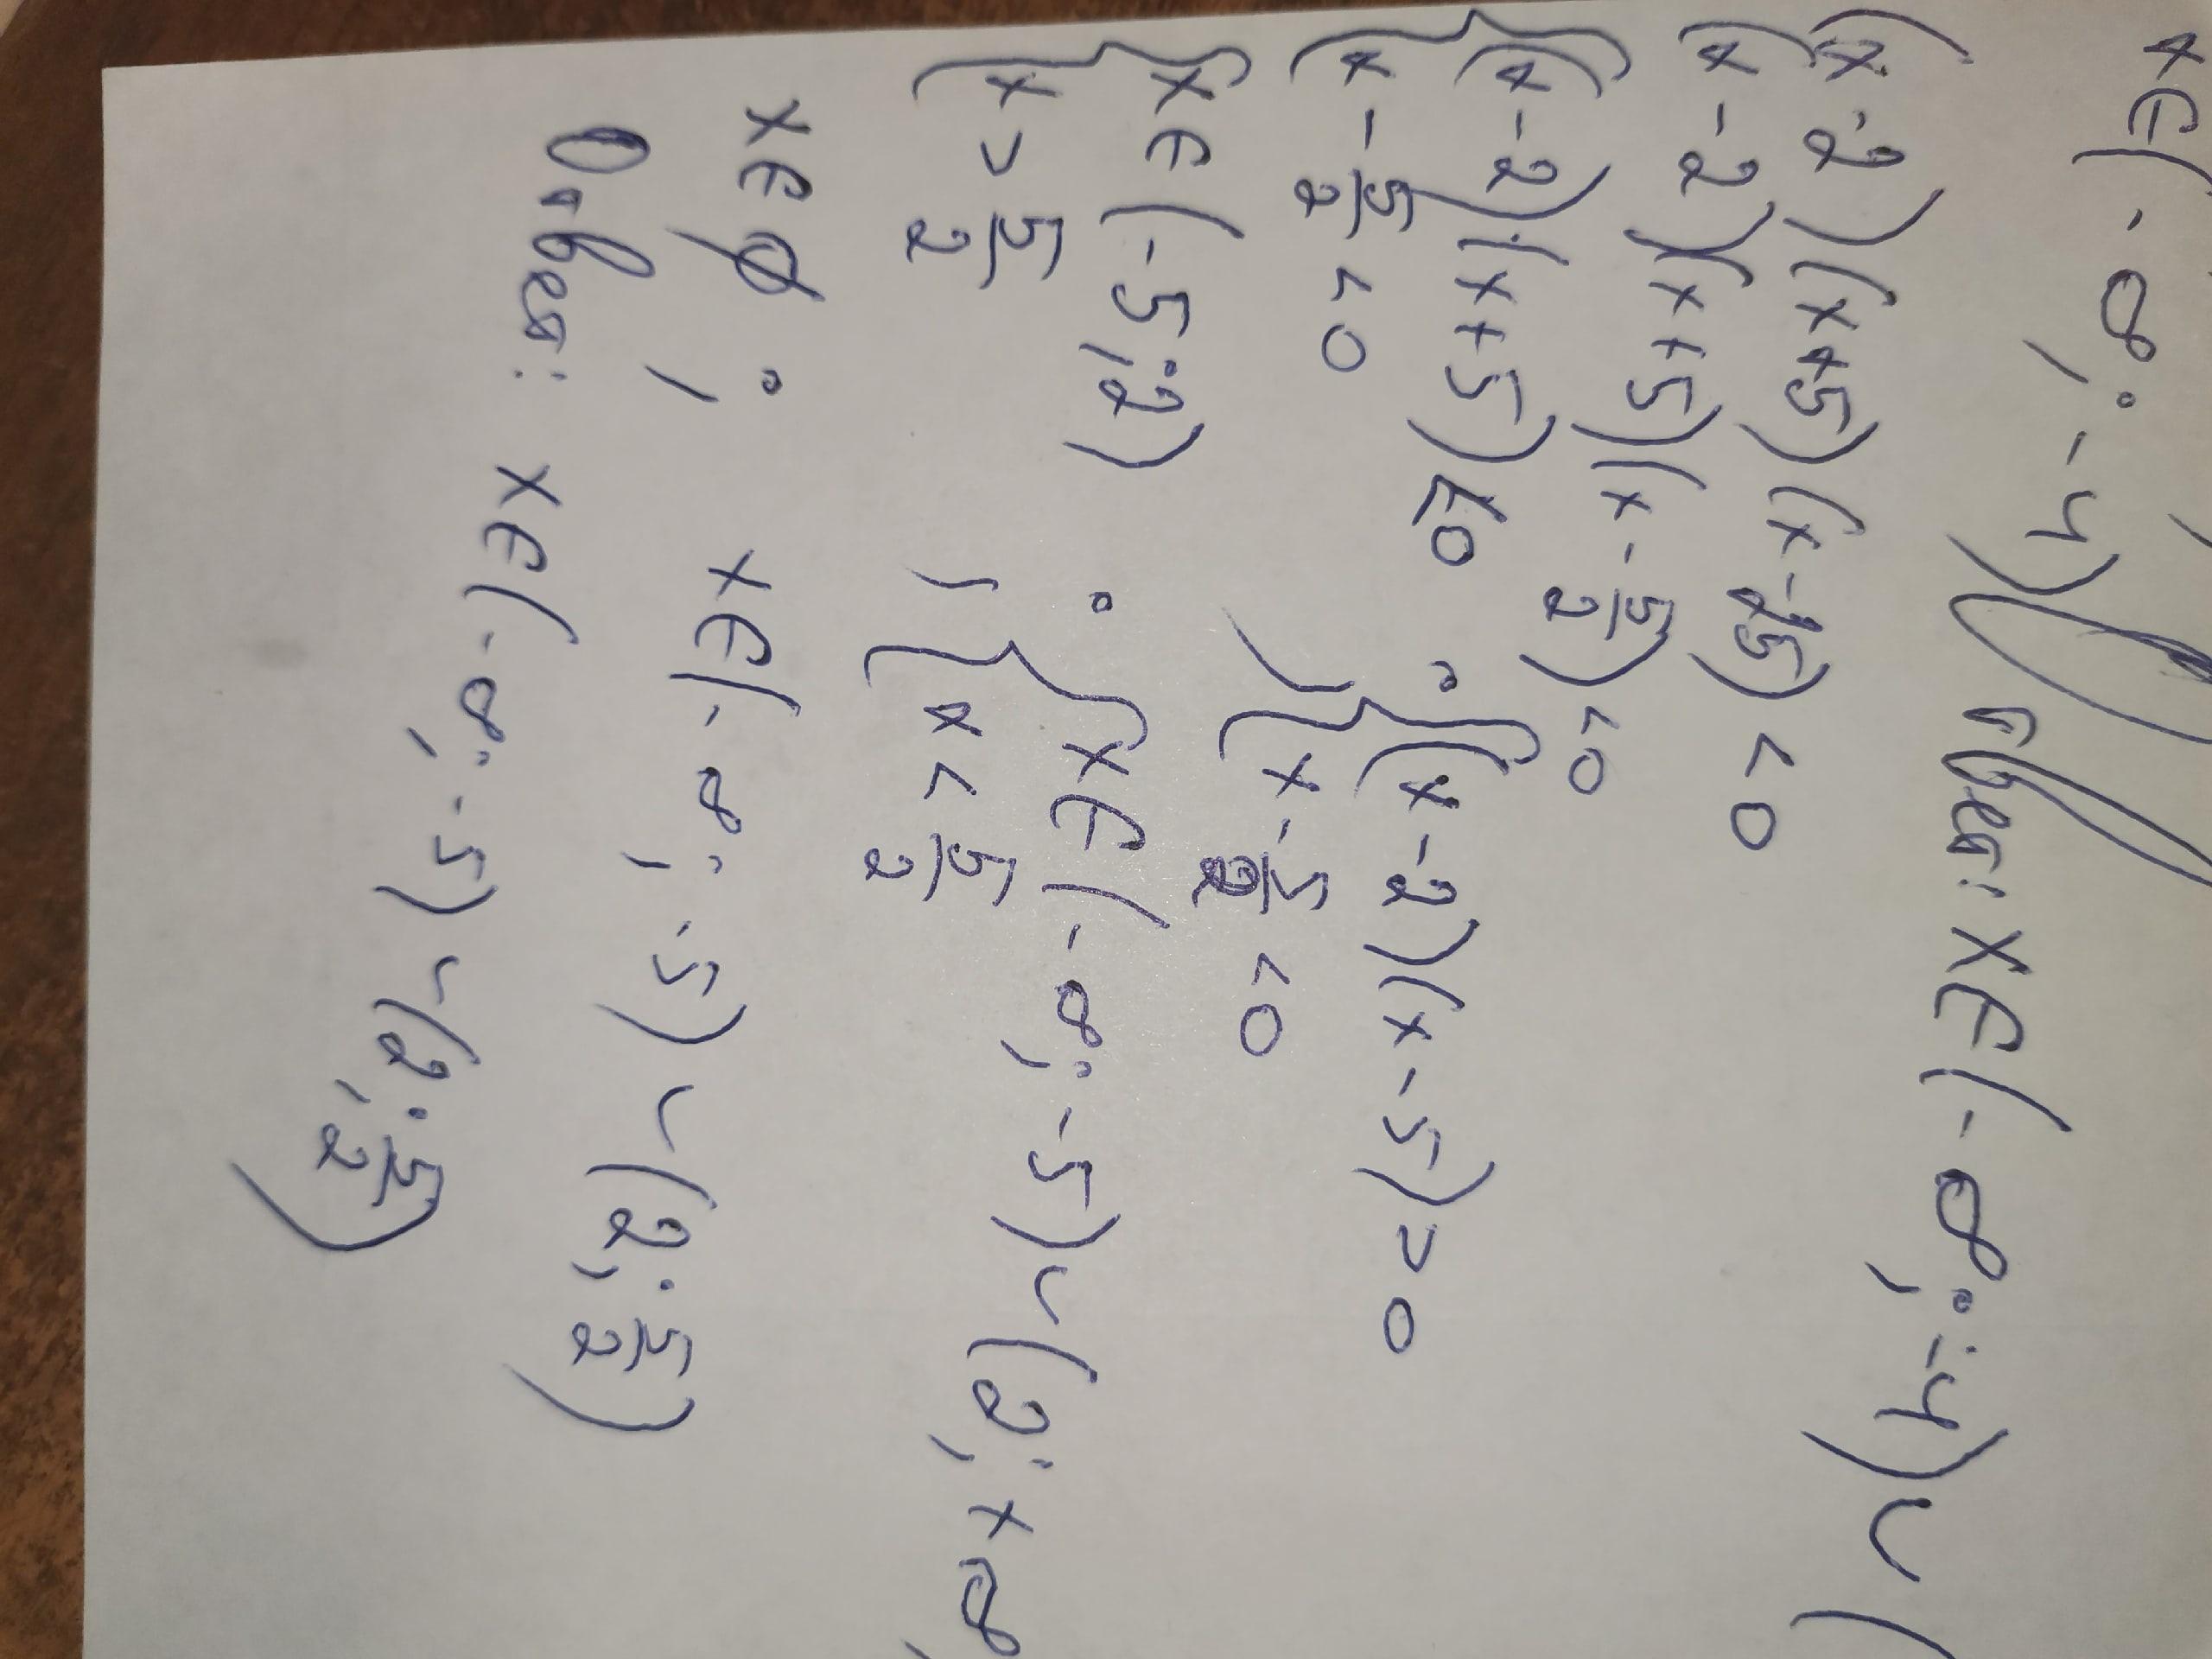 x∈(-∞; -4)
твет: x∈(-∞; -4)∪(
(x-2)(x+5)(x-2,5)<0
(x-2)(x+5)(x-5/2)<0
{(x-2)(x+5)<0 ; {(x-2)(x-5)>0
x-5/2<0 x-5/2<0
{x∈(-5;2) ; {x∈(-∞;-5)∪(2;+∞
x>5/2 x<5/2
x∈∅ ; x∈(-∞;-5)∪(2;5/2)
Ответ: x∈(-∞;-5)∪(2;5/2)